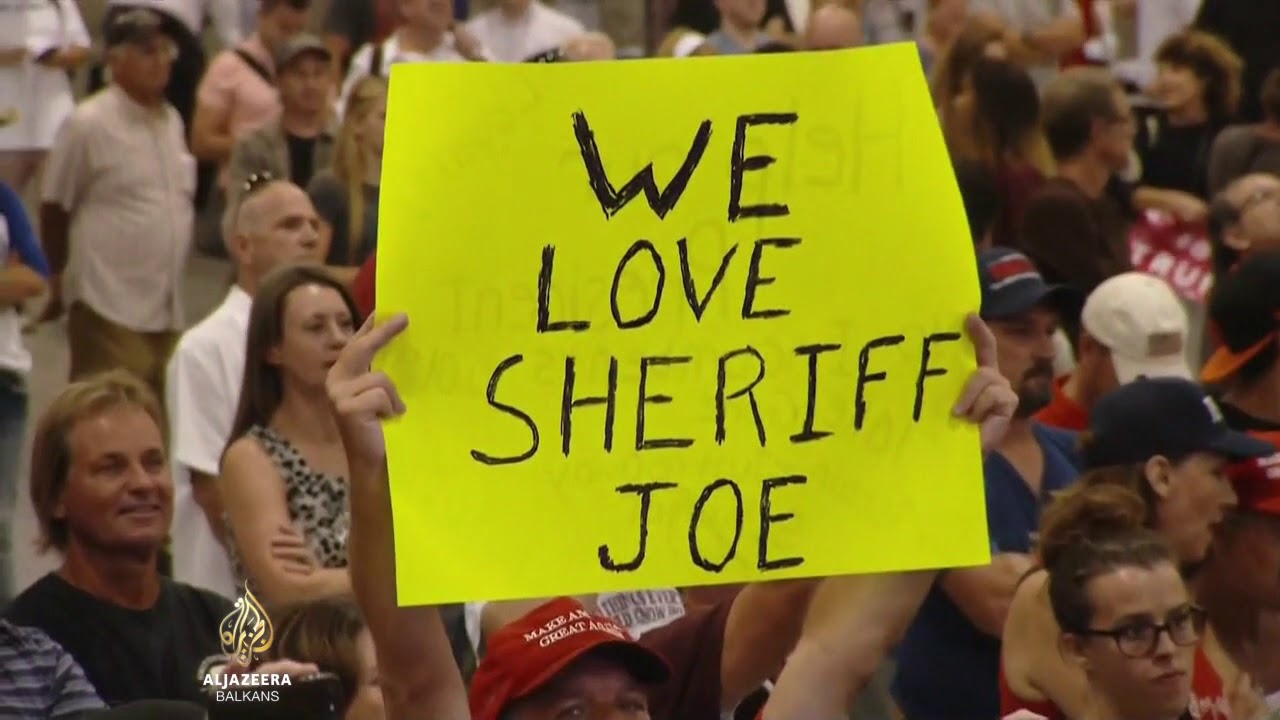 WE
LOVE
SHERIFF
JOE
MAKE AM
GREAT AGAIN
TRU
ALJAZEERA
BALKANS